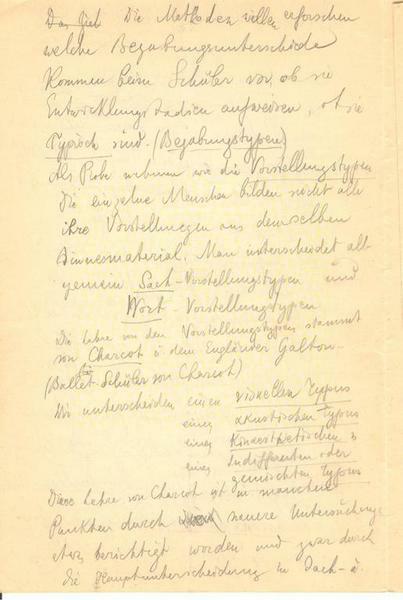 Das Ziel Die Methoden wollen erforschen
welche Begabungsunterschiede
kommen beim Schüler vor, ob sie
Entwicklungsstadien aufweisen, ob sie
Typisch sind. (Begabungstypen)
Als Probe nehmen wir die Vorstellungstypen
Die einzelne Menschen bilden nicht alle
ihre Vorstellungen aus demselben
Sinnesmaterial. Man unterscheidet all-
gemein Sach-Vorstellungstypen und
Wort-Vorstellungstypen
Die Lehre von den Vorstellungstypen stammt
von Charcot u dem Engländer Galton.
(Ballet Schüler von Charcot)
Wir unterscheiden einen visuellen Typus
einen akustischen Typus
einen Kinaesthetischen
einen Indifferenten oder
gemischten Typus
Diese Lehre von Charcot ist in manchen
Punkten durch neuere Untersuchung
etwas berichtigt worden und zwar durch
die Hauptunterscheidung in Sach- u.